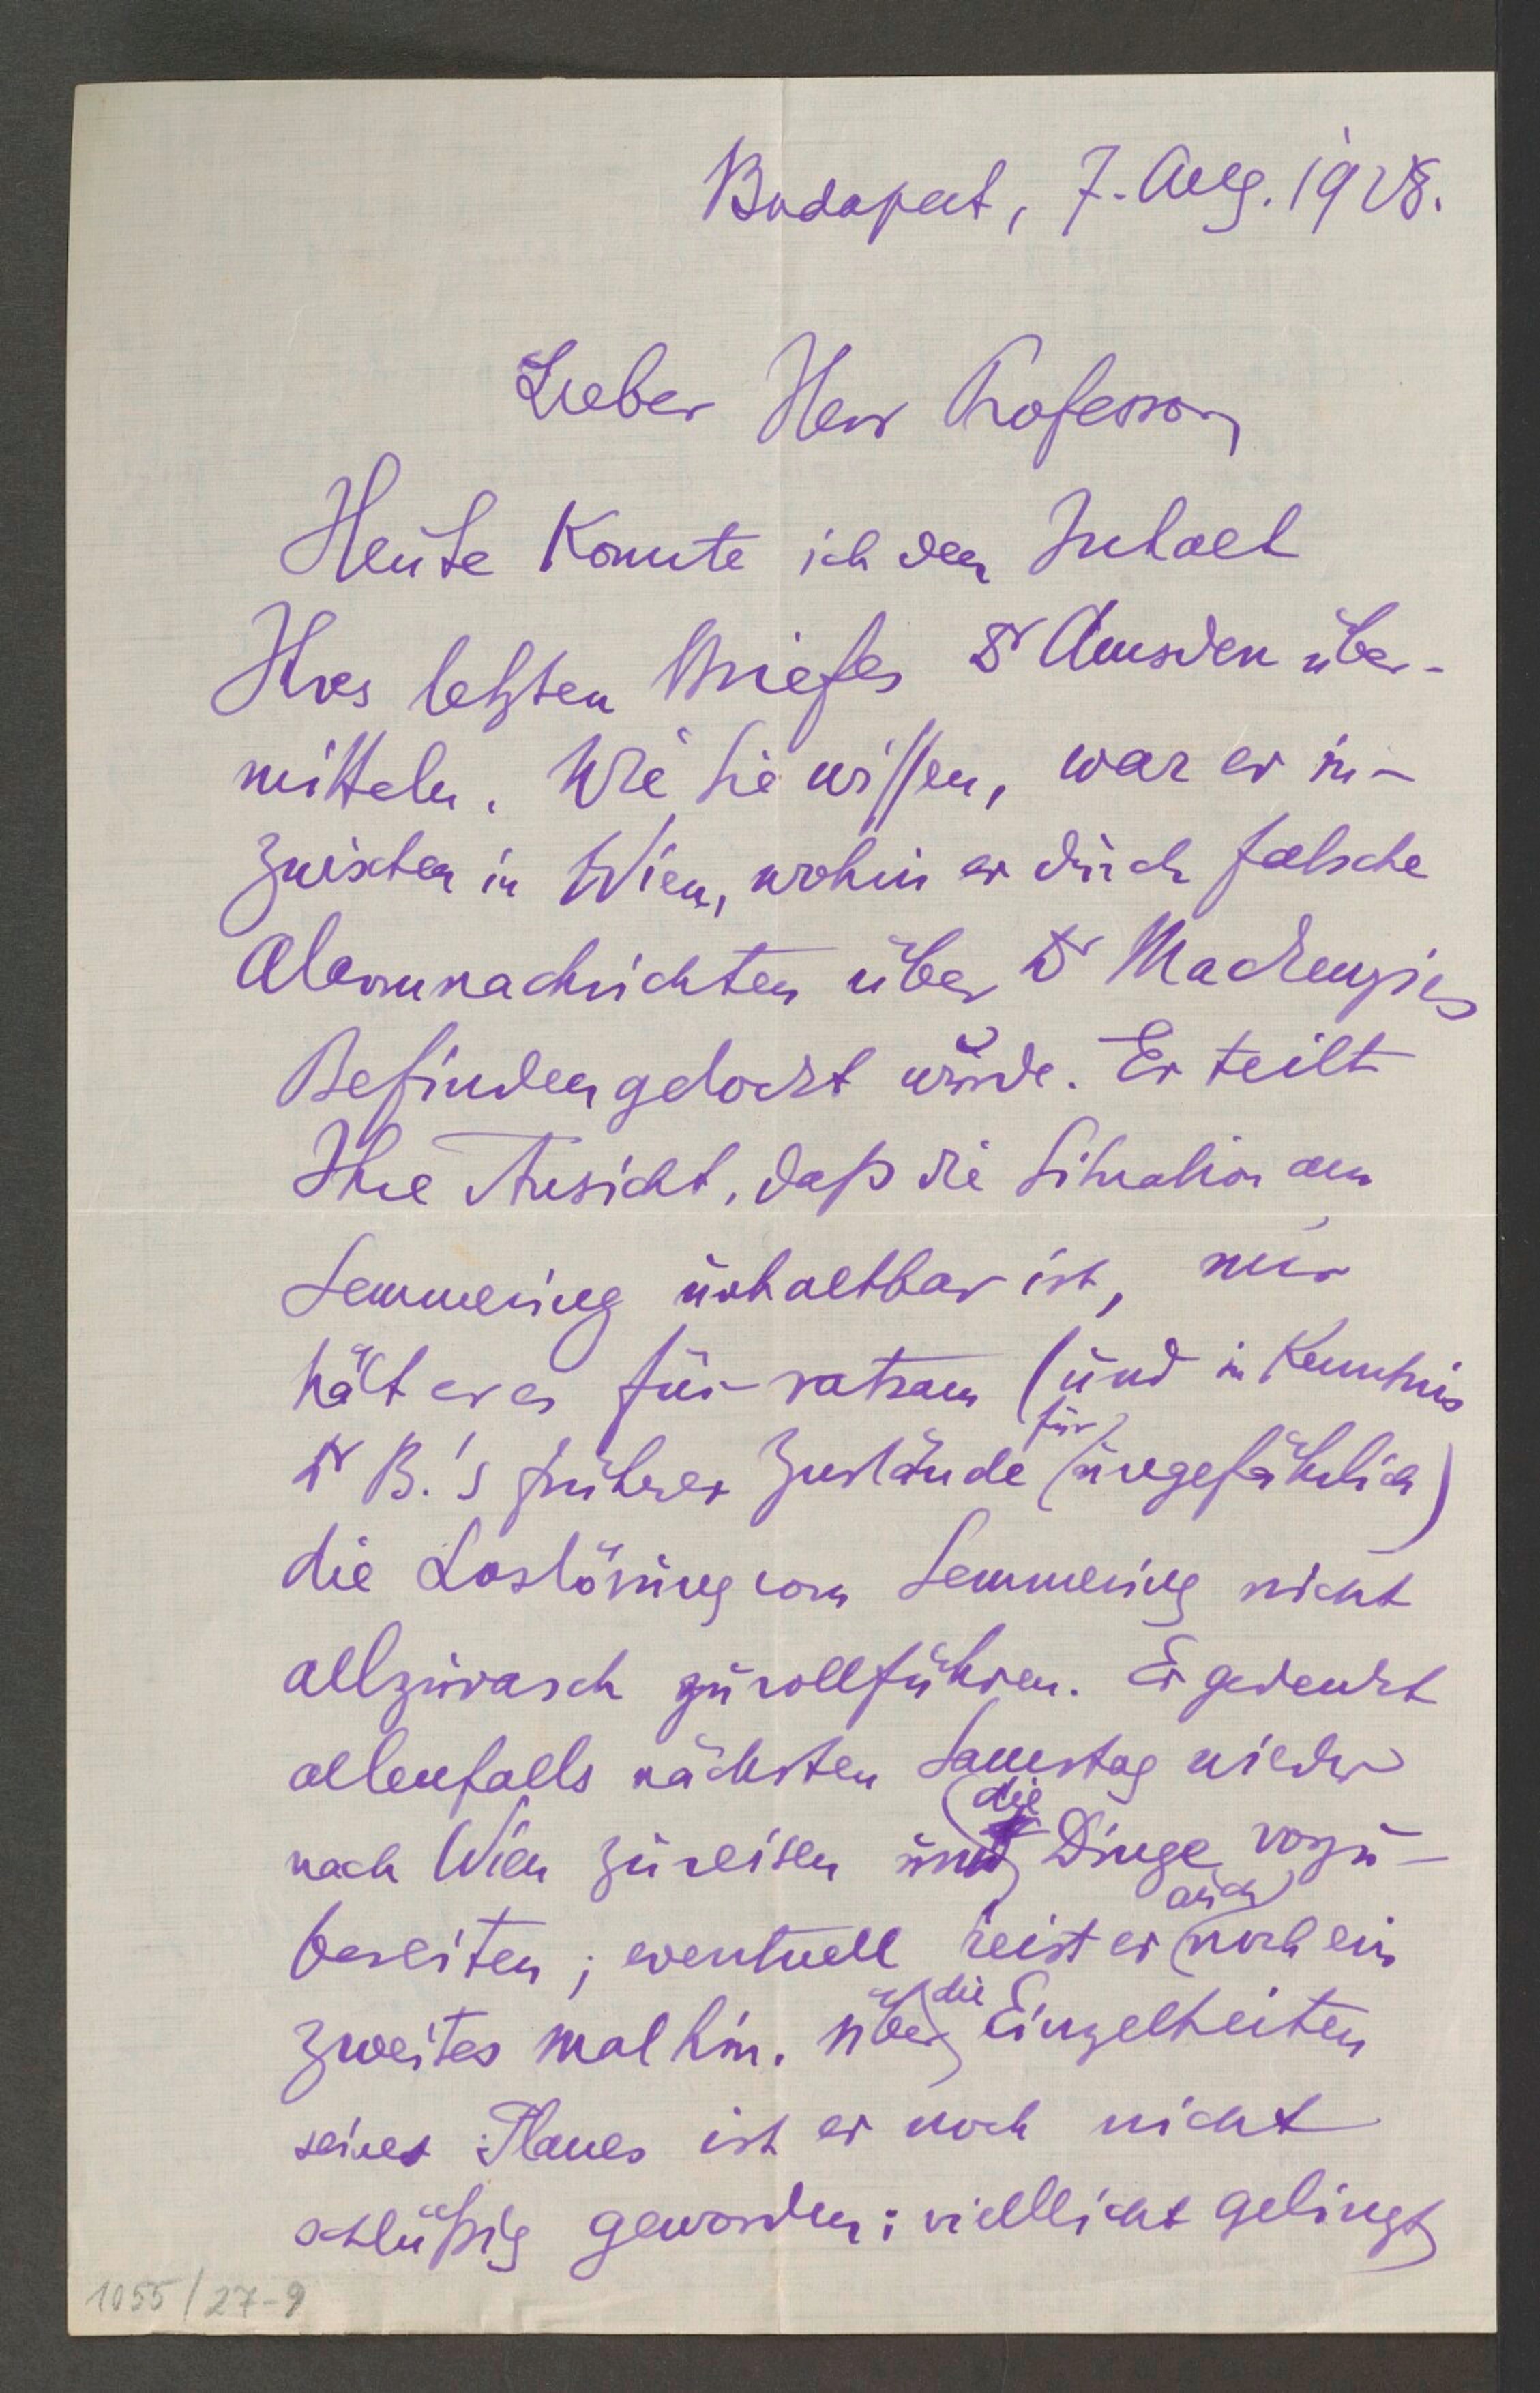 Budapest, 7. Aug. 1928.
Lieber Herr Professor,
Heute konnte ich den Inhalt
Ihres letzten Briefes Dr Amsden über-
mitteln. Wie Sie wissen, war er in-
zwischen in Wien, wohin er durch falsche
Alarmnachrichten über Dr Mackenzies
Befinden gelockt würde. Er teilt
Ihre Ansicht, daß die Situation am
Semmering unhaltbar ist, nur
hält er es für ratsam (und in Kenntnis
Dr B.'s früherer Zustände für ungefährlich)
die Loslösung vom Semmering nicht
allzurasch zu vollführen. Er gedenkt
allenfalls nächsten Samstag wieder
nach Wien zu reisen und die Dinge vorzu-
bereiten; eventuell reist er auch noch ein
zweites mal hin. Über die Einzelheiten
seines Planes ist er noch nicht
schlüßig geworden; viellicht gelingt
1055/27-9